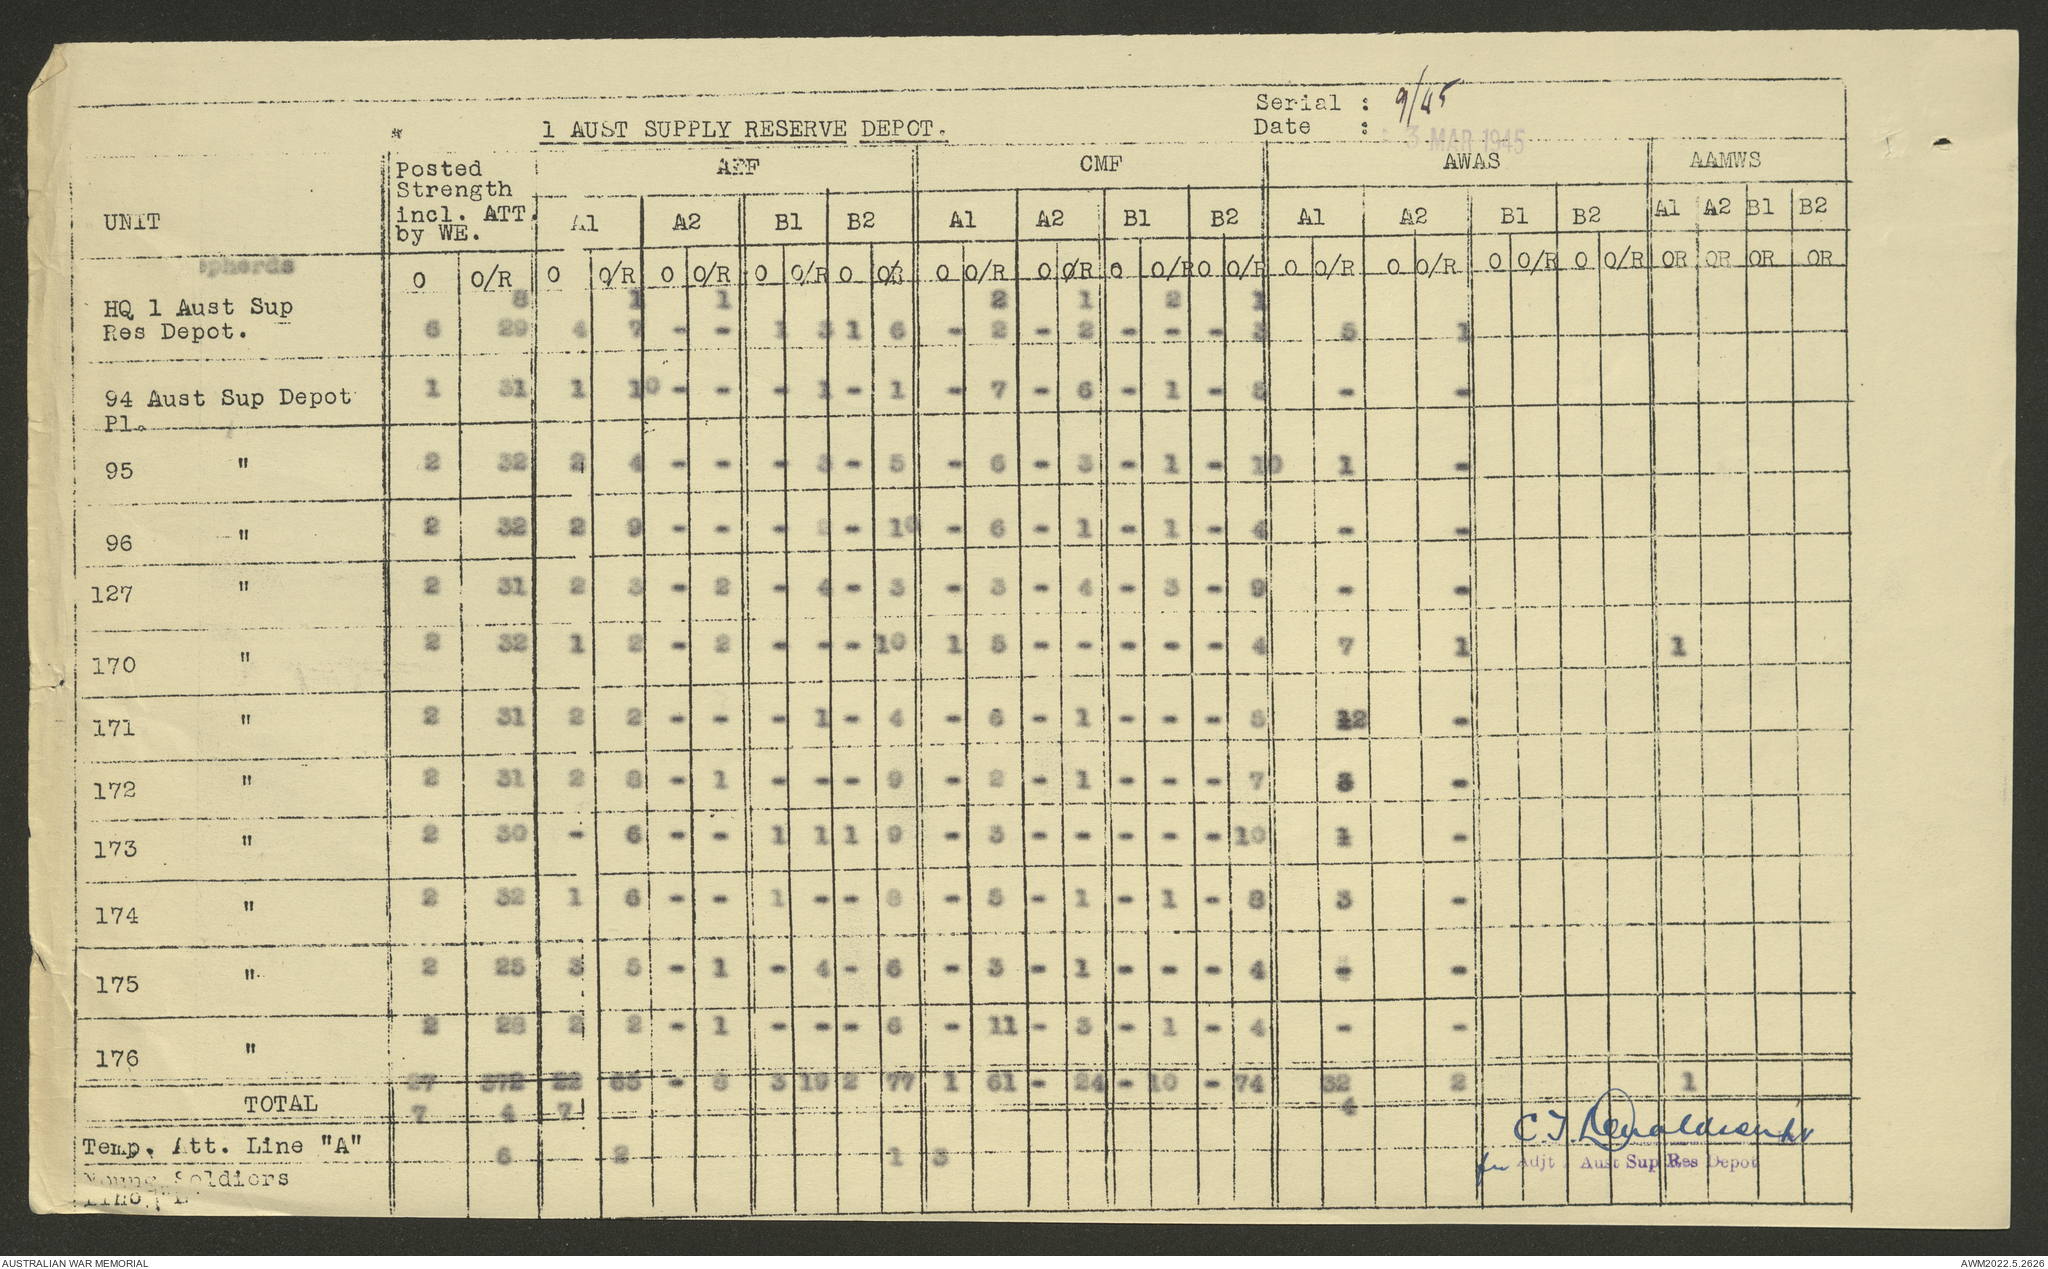 Serial : 9/45
1 AUST SUPPLY RESERVE DEPOT.
Date : 3 MAR 1945
UNIT Posted Strength incl. ATT. by WE. AIF CMF AWAS AAMWS
A1 A2 B1 B2 A1 A2 B1 B2 A1 A2 B1 B2 A1 A2 B1 B2
O O/R O O/R O O/R O O/R O O/R O O/R O O/R O O/R O O/R O O/R O O/R O O/R O O/R OR OR OR OR
8 1 1 2 1 2 1
HQ 1 Aust Sup
Res Depot. 6 29 4 7 - - 1 3 1 6 - 2 - 2 - - - 3 5 1
94 Aust Sup Depot 1 31 1 10 - - - 1 - 1 - 7 - 6 - 1 - 5 - -
Pl.
95 " 2 32 2 4 - - - 3 - 5 - 6 - 3 - 1 - 10 1 -
96 " 2 32 2 9 - - - - 10 - 6 - 1 - 1 - 4 - -
127 " 2 31 2 3 - 2 - 4 - 3 - 3 - 4 - 3 - 9 - -
170 " 2 32 1 2 - 2 - - - 10 1 5 - - - - - 4 7 1 1
171 " 2 31 2 2 - - - 1 - 4 - 6 - 1 - - - 5 12 -
172 " 2 31 2 8 - 1 - - - 9 - 2 - 1 - - - 7 3 -
173 " 2 30 - 6 - - 1 1 1 9 - 3 - - - - - 10 1 -
174 " 2 32 1 6 - - 1 - - 8 - 5 - 1 - 1 - 8 3 -
175 " 2 25 3 5 - 1 - 4 - 6 - 3 - 1 - - - 4 - -
176 " 2 28 2 2 - 1 - - - 6 - 11 - 3 - 1 - 4 - -
27 372 22 65 - 8 3 19 2 77 1 61 - 24 - 10 - 74 32 2 1
TOTAL 7 4 7 4
C.T. Donaldson
Temp. Att. Line "A" 6 2 1 3
for Adjt Aust Sup Res Depot
Young Soldiers
AUSTRALIAN WAR MEMORIAL
AWM2022.5.2626